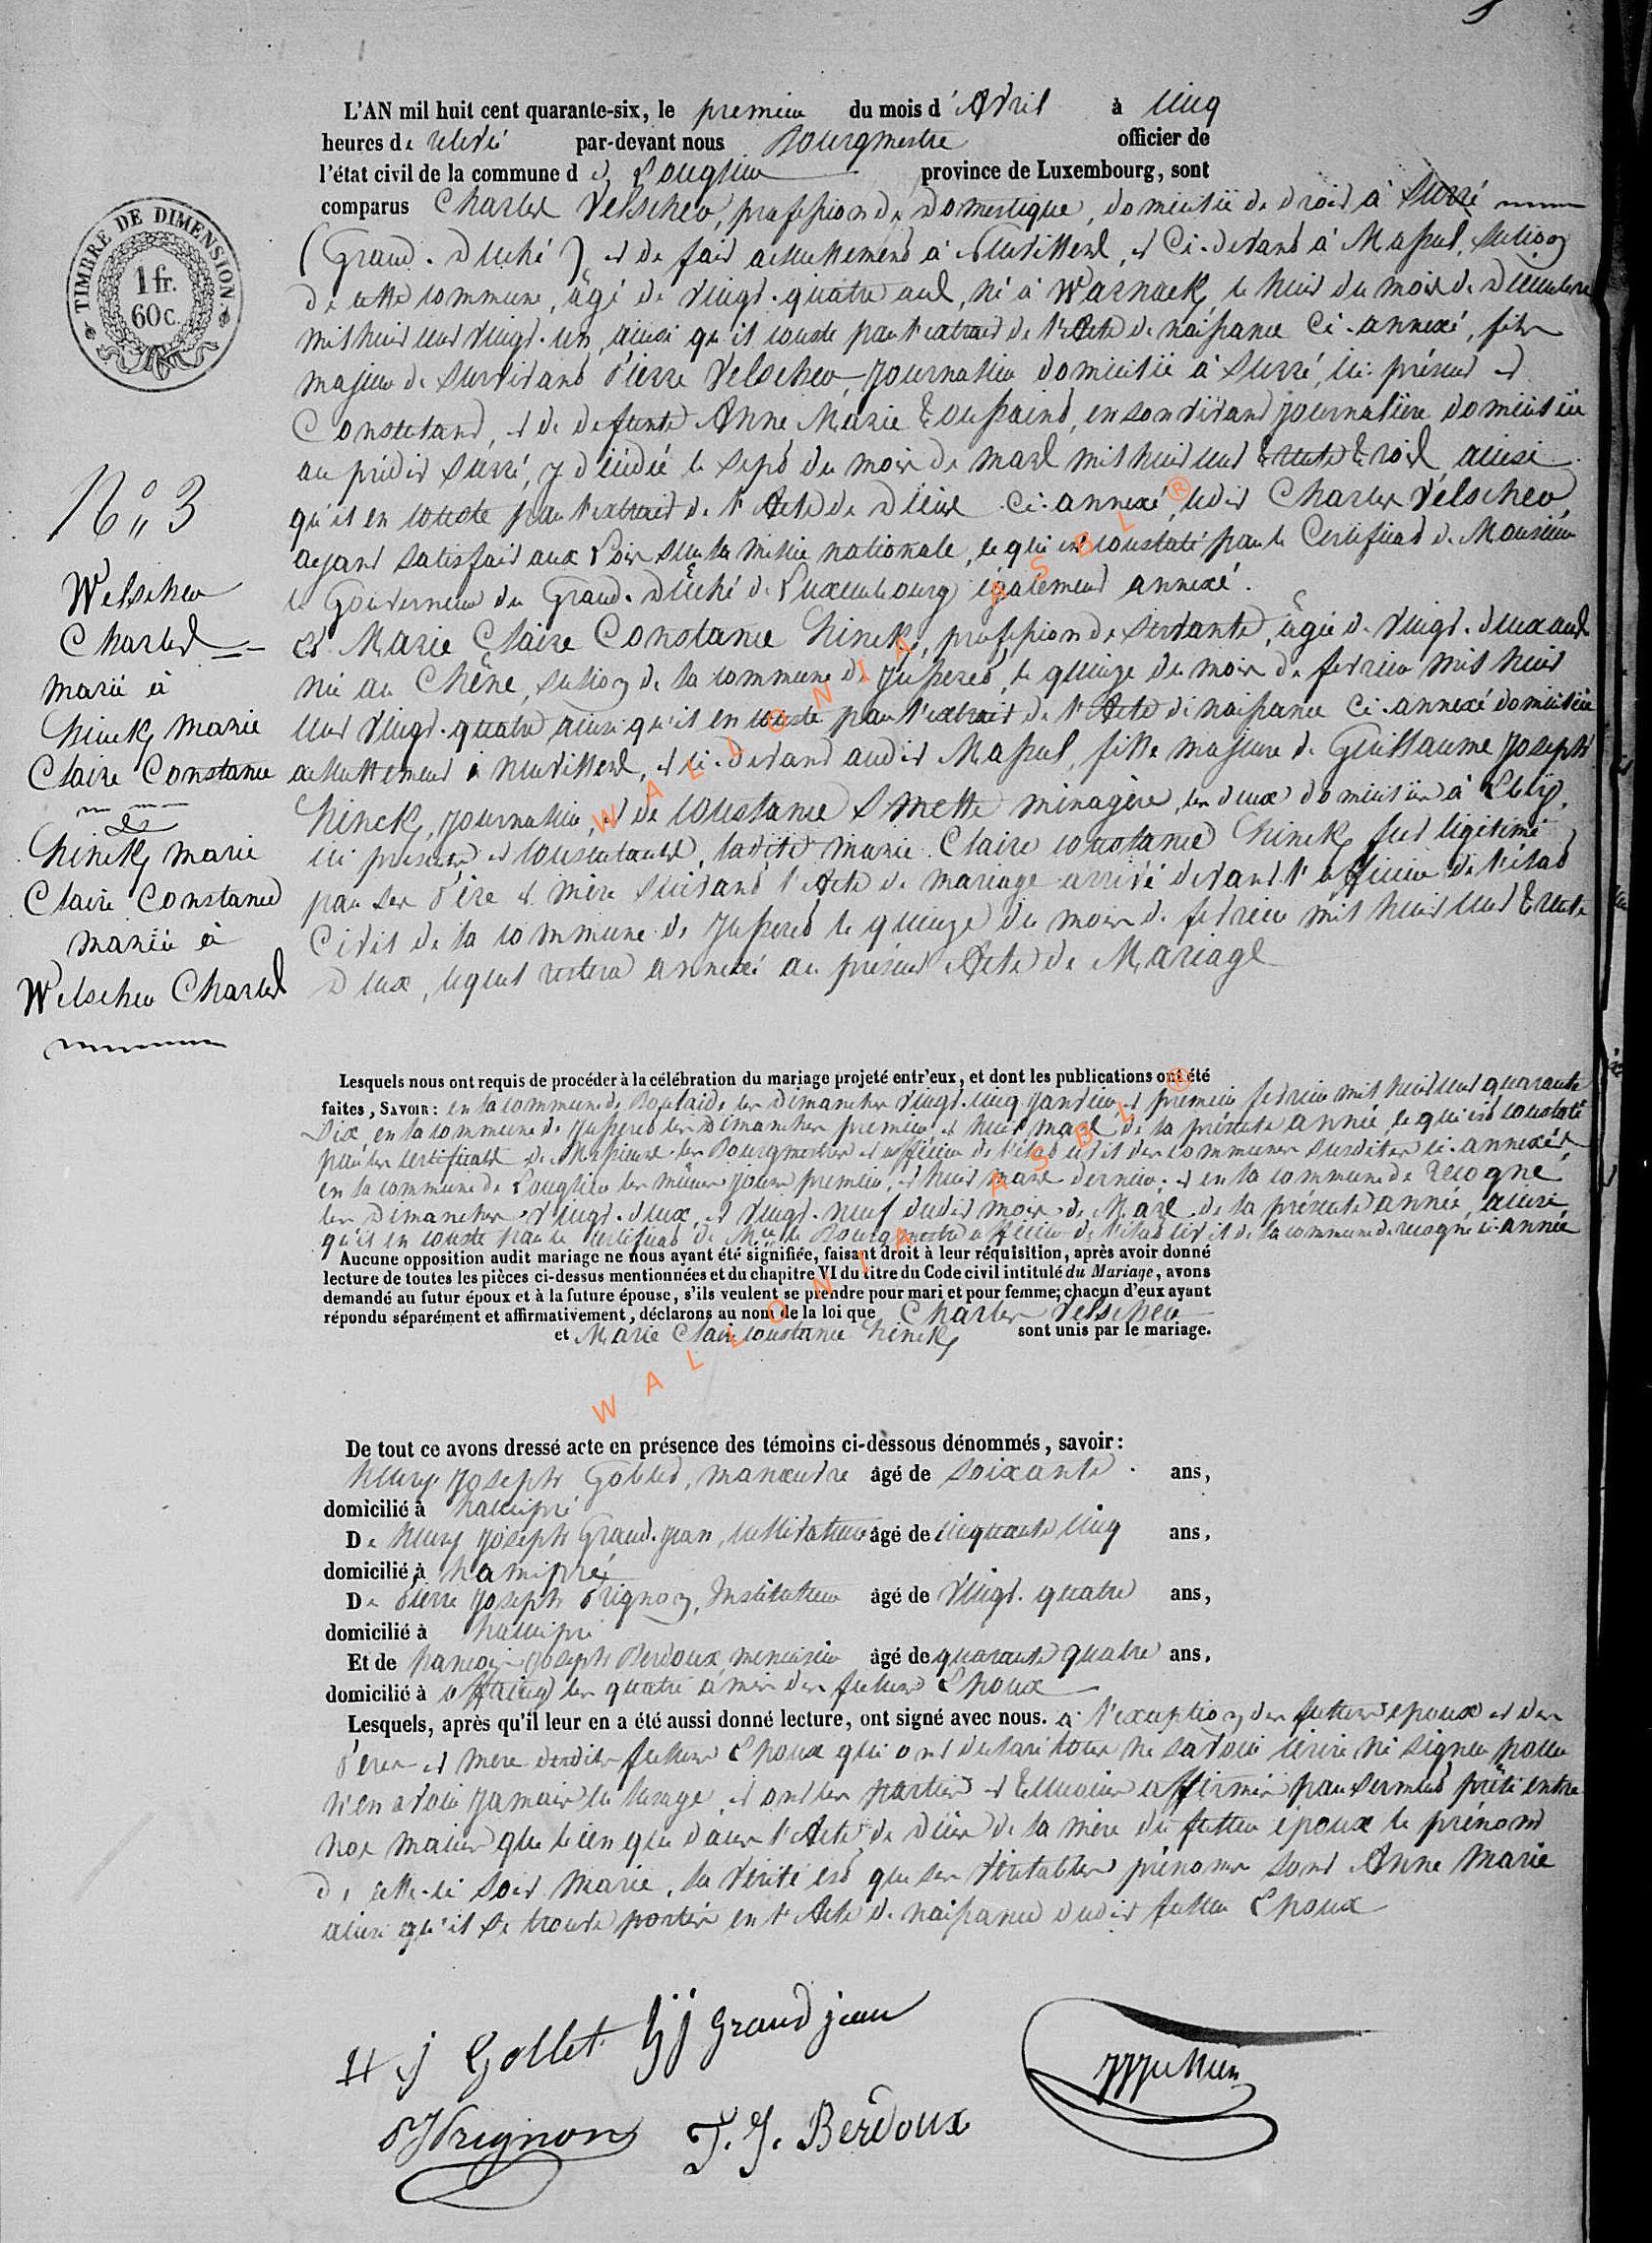 L'AN mil huit cent quarante-six, le premier du mois d'Avril à cinq
heures de relevé par-devant nous Bourgmestre officier de
l'état civil de la commune d de Longlier province de Luxembourg, sont
comparus Charles Velscher, profession de Domestique, domicilié de droit à Surré
(Grand-Duché) et de fait actuellement à et Ci-devant à Massul, section
de cette commune, âgé de vingt-quatre ans, né à Warnack, le huit du mois de Décembre
mil huit cent vingt-un, ainsi qu'il conste par l'extrait de l'Acte de naissance Ci-annexé, fils
majeur de survivant Pierre Velscher, Journalier domicilié à Surré, ici présent et
Consentant, et de defunte Anne Marie Toussaint, en son vivant journalière domiciliée
au prédit Surré, y décédée le sept du mois de mars mil huit cent trente trois ainsi
qu'il en conste par l'extrait de l'Acte de Décès Ci-annexé, ledit Charles Velscher,
ayant satisfait aux Lois sur la milice nationale, ce qui est constaté par le Certificat de Monsieur
le Gouverneur du Grand-Duché de Luxembourg également annexé.
Et Marie Claire Constance Hinck, profession de servante, âgée de vingt-deux ans
née au Chêne, section de la commune de Juseret, le quinze du mois de fevrier mil huit
cent vingt-quatre ainsi qu'il en conste par l'extrait de l'Acte de naissance Ci-annexé domiciliée
actuellement à et ci-devant audit Massul, fille majeure de Guillaume Joseph
Hinck, journalier, et de Constance Smette ménagère, les deux domiciliés à
ici présents et consentants, ladite Marie Claire Constance Hinck fut légitimé
par ses Père et mère suivant l'Acte de mariage arrivé devant l'officier de l'état
Civil de la commune de Juseret le quinze du mois de fevrier mil huit cent trente
Deux, lequel restera annexé au présent Acte de Mariage
TIMBRE DE DIMENSION.
1 fr.
60 c.
N° 3
Welscher
Charles
marié à
Hinck Marie
Claire Constance
&
Hinck Marie
Claire Constance
mariée à
Welscher Charles
Lesquels nous ont requis de procéder à la célébration du mariage projeté entr'eux, et dont les publications ont été
faites, SAVOIR: en la commune de Boulaide les Dimanches vingt-cinq Janvier et premier fevrier mil huit cent quarante
Six, en la commune de Juseret les Dimanches premier et huit mars de la présente année ce qui est constaté
par les certificats de Messieurs les Bourgmestres et officiers de l'état civil des communes susdites ci-annexés
en la commune de Longlier les mêmes jours premier, et huit mars dernier. et en la commune de Recogne
les Dimanches vingt-deux, et vingt-neuf dudit mois de Mars de la présente année, ainsi
qu'il en conste par le certificat de Mr le Bourgmestre officier de l'état civil de la commune de recogne ci-annexé
Aucune opposition audit mariage ne nous ayant été signifiée, faisant droit à leur réquisition, après avoir donné
lecture de toutes les pièces ci-dessus mentionnées et du chapitre VI du titre du Code civil intitulé du Mariage, avons
demandé au futur époux et à la future épouse, s'ils veulent se prendre pour mari et pour femme; chacun d'eux ayant
répondu séparément et affirmativement, déclarons au nom de la loi que Charles Velscher
et Marie Claire Constance Hinck sont unis par le mariage.
De tout ce avons dressé acte en présence des témoins ci-dessous dénommés, savoir:
Henry Joseph Gollet, manœuvre âgé de soixante ans,
domicilié à hamipré
De Henry Joseph Grand-jean, cultivateur âgé de cinquante cinq ans,
domicilié à hamipré
De Pierre Joseph Prignon, Instituteur âgé de vingt-quatre ans,
domicilié à hamipré
Et de francois Joseph Berdoux, menuisier âgé de quarante quatre ans,
domicilié à offaing les quatre amis des futurs Epoux
Lesquels, après qu'il leur en a été aussi donné lecture, ont signé avec nous. à l'exception des futurs epoux et des
Pères et mère desdits futurs Epoux qui ont declaré tous ne savoir écrire ni signer pour
n'en avoir jamais eu l'usage, et ont les parties et témoins affirmé par serment prêté entre
nos mains que bien que dans l'Acte de Décès de la mère du futur époux le prénom
de celle-ci soit Marie, la vérité est que ses véritables prénoms sont Anne Marie
ainsi qu'il se trouve portés en l'Acte de naissance dudit futur Epoux
H J Gollet hj Grandjean
PJPrignon F. J. Berdoux
WALLONIA ASBL®
WALLONIA ASBL®